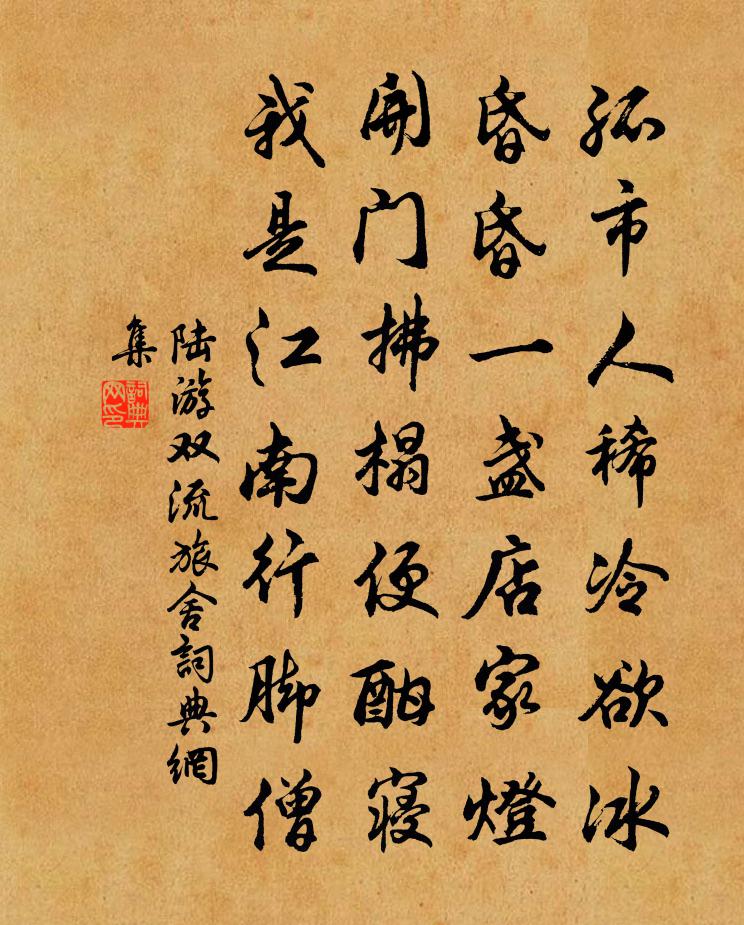 孤市人稀冷欲冰
昏昏一盏店家燈
開门拂榻便酣寝
我是江南行脚僧
陆游双流旅舍詞典網
集
詞典网印